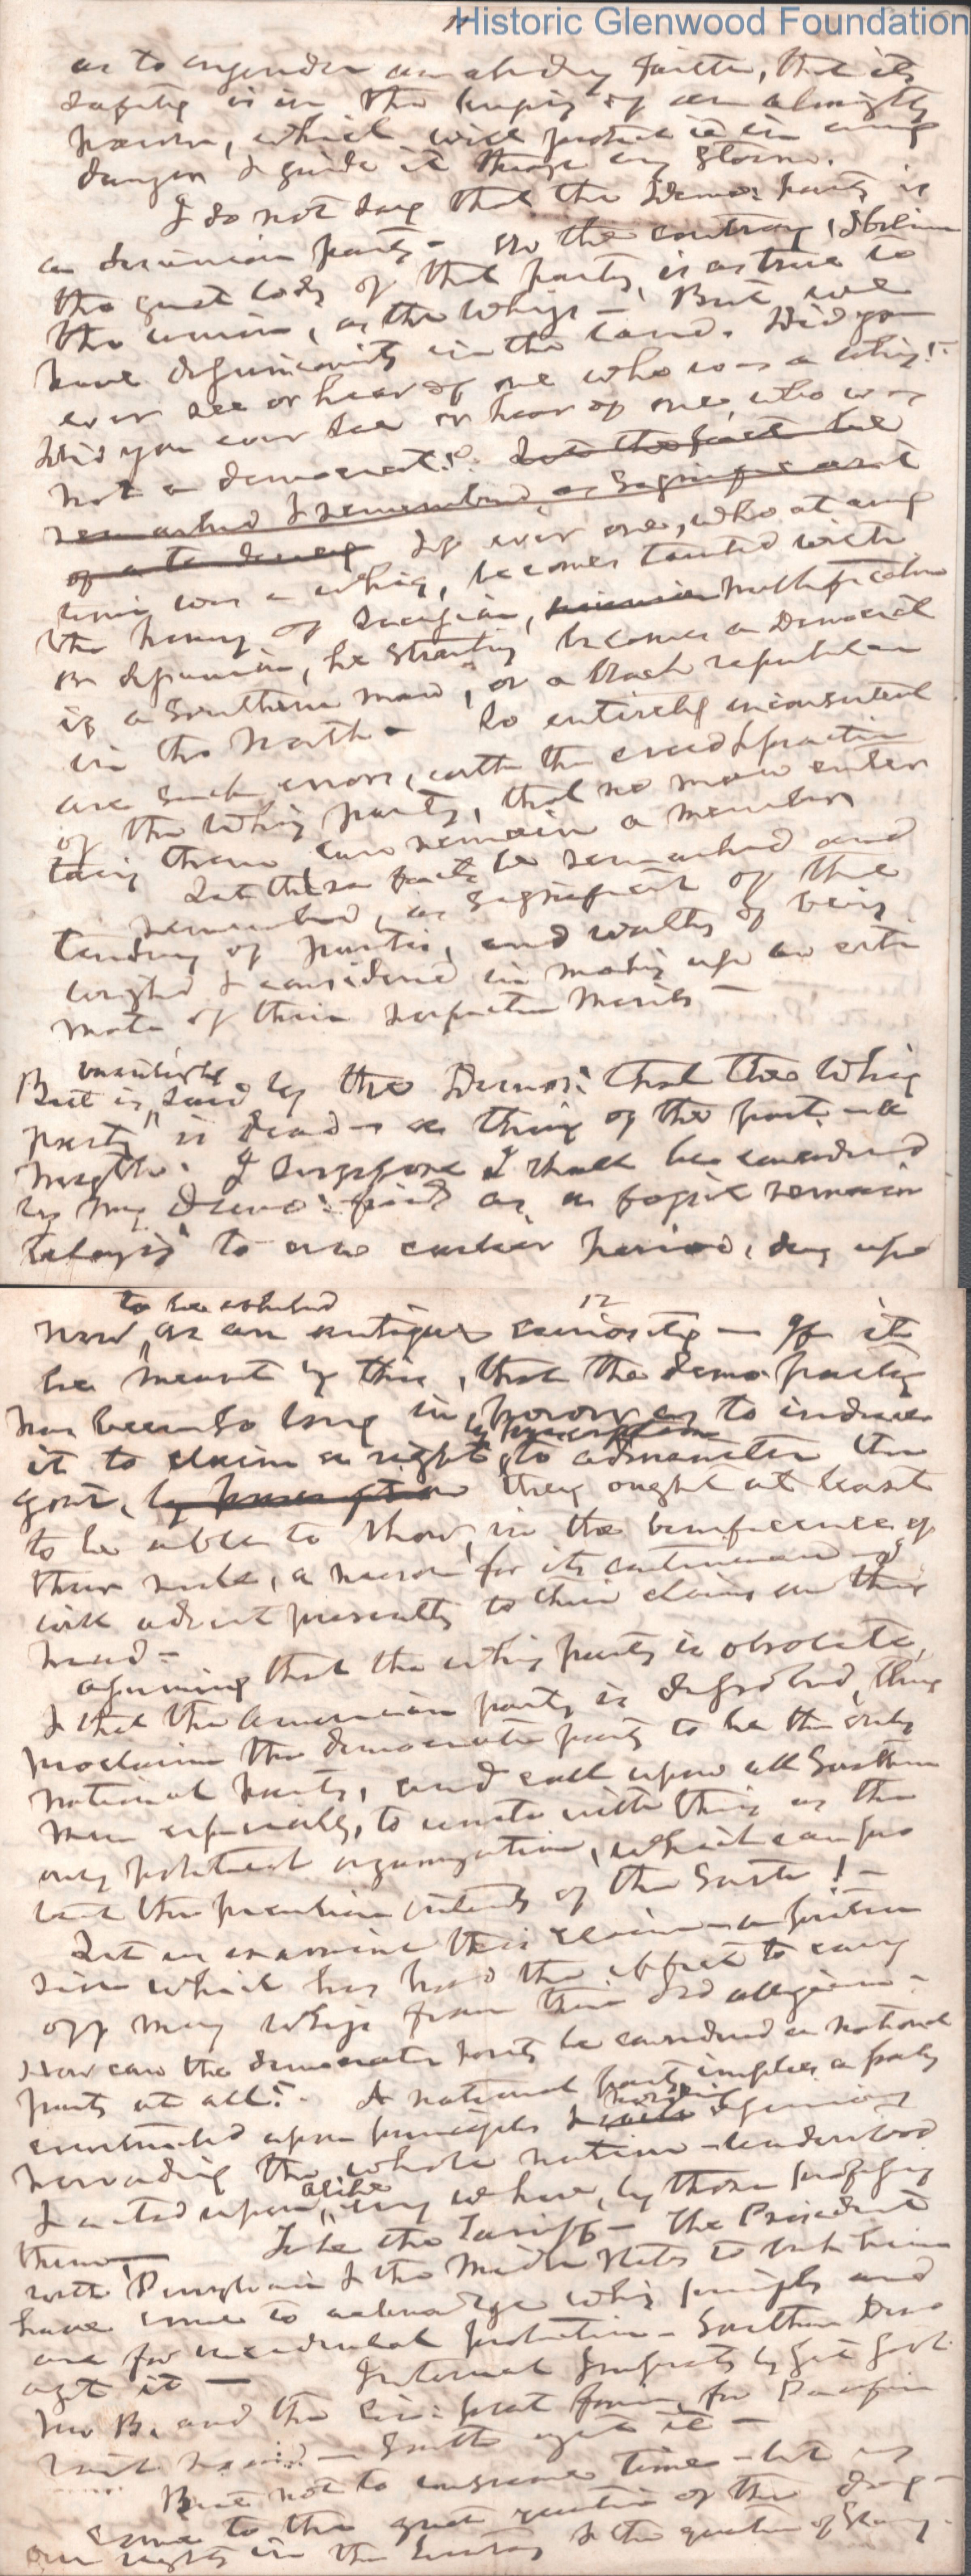 Historic Glenwood Foundation
11
as to engender an abiding faith, that its
safety is in the keeping of an almighty
power, which will protect it in every
danger & guide it through every storm.
I do not say that the Demo: party is
a disunion party - On the contrary, I believe
the great body of that party, is as true to
the union, as the Whigs - But, we
have disunionists in the land. Did you
ever see or hear of one who was a whig?
Did you ever see or hear of one, who was
not a democrat? Let the fact be
remarked & remembered, as significant
of a tendency If ever one, who at any
time was a whig, becomes tainted with
the heresy of secession, nullification
or disunion, he straitway becomes a Democrat
if a Southern man, or a black republican
in the North - So entirely inconsistent
are such errors, with the creed & practice
of the Whig party, that no man enter
taining them can remain a member
Let these facts be remarked and
remembered, as significant of the
tendency of parties, and worthy of being
weighed & considered in making up an esti
mate of their respective merits -
But is said by the Demos: that the Whig
party is dead - a thing of the past - a
myth. I suppose I shall be considered
by my Demo: friends as a fossil remain
belonging to an earlier period, dug up
to be exhibited
12
now, as an antique curiosity - If it
be meant by this, that the demo. party
has been so long in power as to induce
by prescription
it to claim a right, to administer the
govt, by prescription they ought at least
to be able to show, in the beneficence of
their rule, a reason for its continuance - I
will advert presently to their claims on this
head -
Assuming that the whig party is obsolete,
& that the American party is dissolved, they
proclaim the democratic party to be the only
national party, and call upon all Southern
men especially, to unite with them as the
only political organization, which can pro
tect the peculiar interests of the South! -
Let us examine this claim - a
which has had the effect to carry
off many whigs from their old allegiance -
How can the democratic party be considered a national
party at all? A national party implies a party
constructed upon principles & opinions
pervading the whole nation - understood
alike
& acted upon, every where, by those professing
them - Take the Tariff - The President
with Pennsylvania & the Middle States to back him
have come to acknowledge whig principles and
are for incidental protection - Southern Demo
agt it - Internal Improvts by Gen Govt
Mr B. and the Cin: platform, for Pacific
South agt it -
But not to consume time - let us
come to the great question of the day -
our rights in the territory & the question of Slavery -